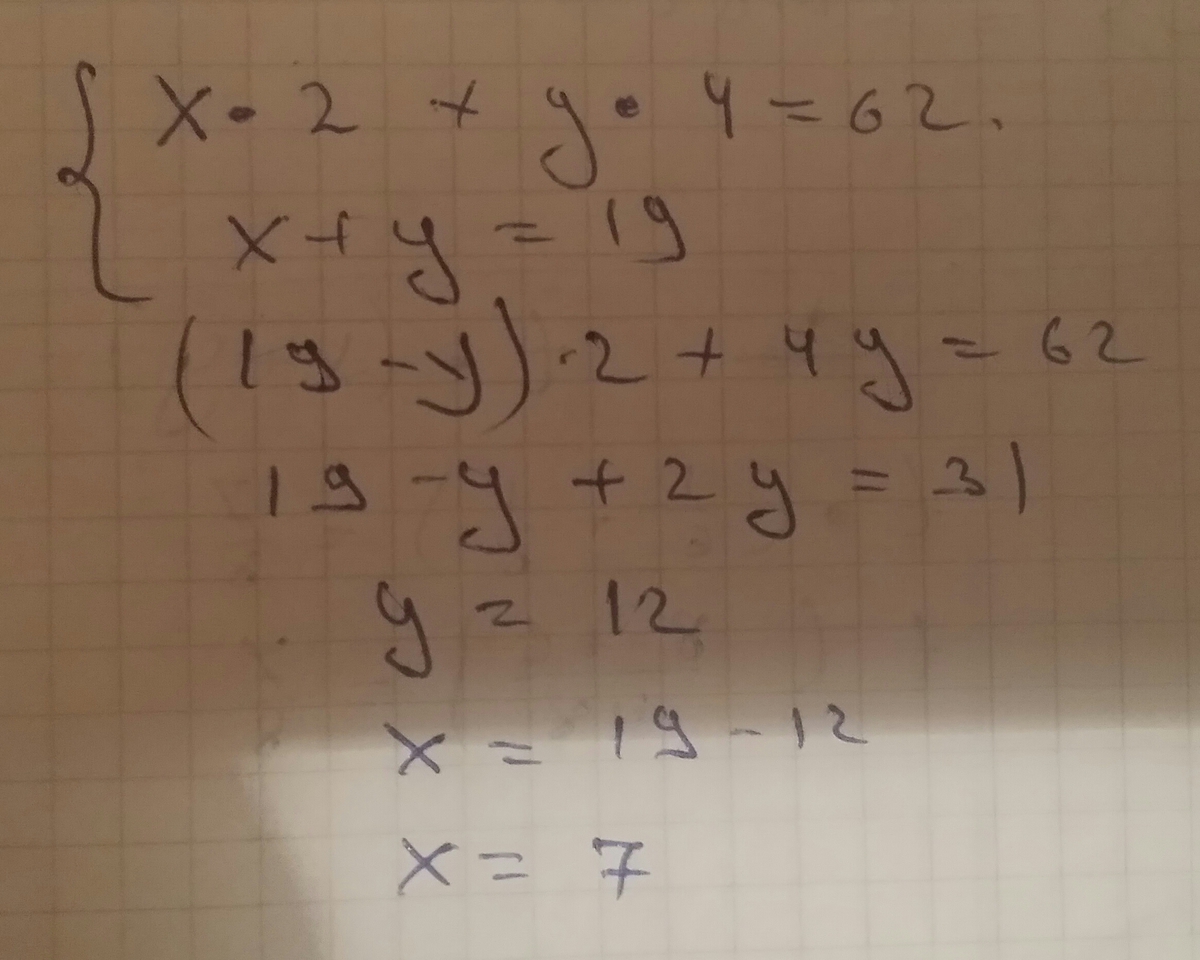 { x · 2 + y · 4 = 62.
x + y = 19
(19 - y) · 2 + 4y = 62
19 - y + 2y = 31
y = 12
x = 19 - 12
x = 7